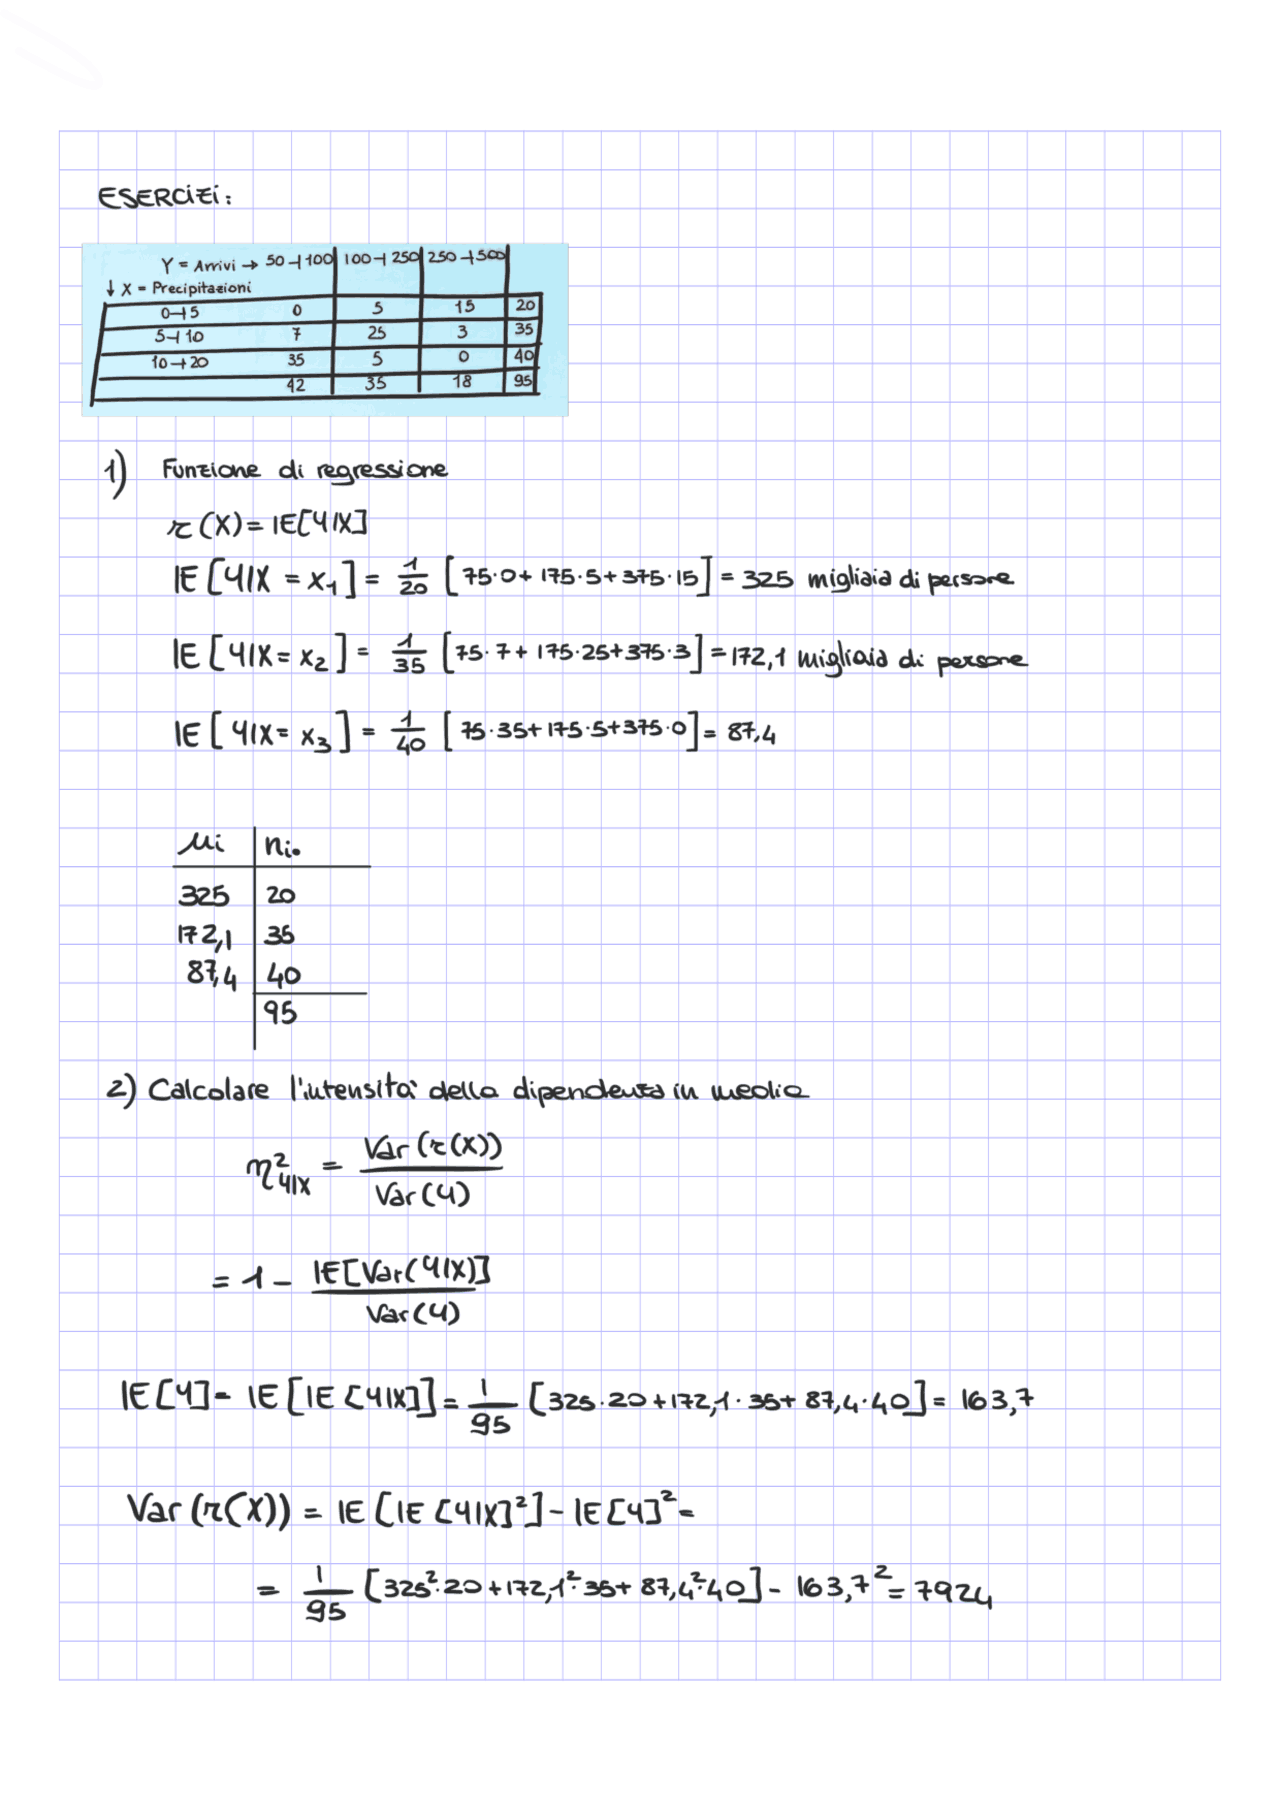 ESERCIZI:
Y = Arrivi → 50⊣100 | 100⊣250 | 250⊣500
↓ X = Precipitazioni
0⊣5 0 5 15 20
5⊣10 7 25 3 35
10⊣20 35 5 0 40
42 35 18 95
1) Funzione di regressione
r(X) = IE[Y|X]
IE[Y|X = x₁] = 1/20 [75·0 + 175·5 + 375·15] = 325 migliaia di persone
IE[Y|X = x₂] = 1/35 [75·7 + 175·25 + 375·3] = 172,1 migliaia di persone
IE[Y|X = x₃] = 1/40 [75·35 + 175·5 + 375·0] = 87,4
μi | ni•
325 | 20
172,1 | 35
87,4 | 40
95
2) Calcolare l'intensità della dipendenza in media
η²Y|X = Var(r(X)) / Var(Y)
= 1 - IE[Var(Y|X)] / Var(Y)
IE[Y] = IE[IE[Y|X]] = 1/95 [325·20 + 172,1·35 + 87,4·40] = 163,7
Var(r(X)) = IE[IE[Y|X]²] - IE[Y]² =
= 1/95 [325²·20 + 172,1²·35 + 87,4²·40] - 163,7² = 7924